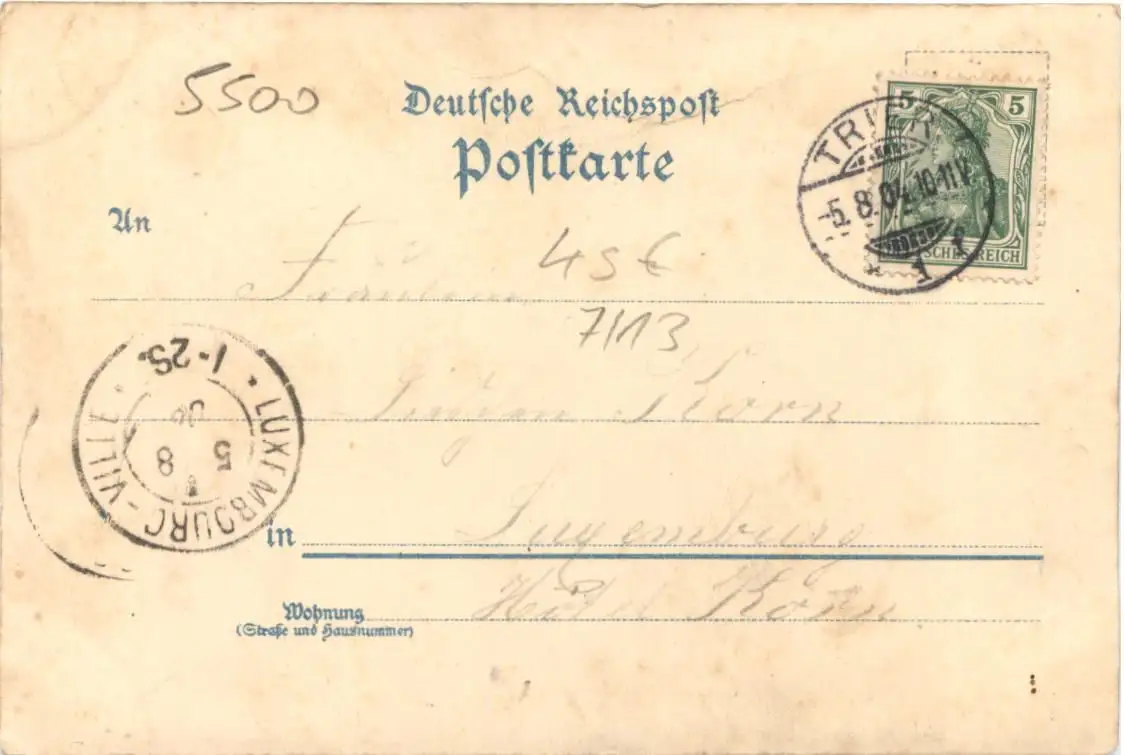 5500
Deutsche Reichspost
Postkarte
5 5
DEUTSCHES REICH
TRIER
-5.8.04.10-11V
* 1 f
An
Fräulein
45€
7/13
Korn
LUXEMBOURG-VILLE
1-25.
5 8
in Luxemburg
Wohnung Hôtel Korn
(Straße und Hausnummer)